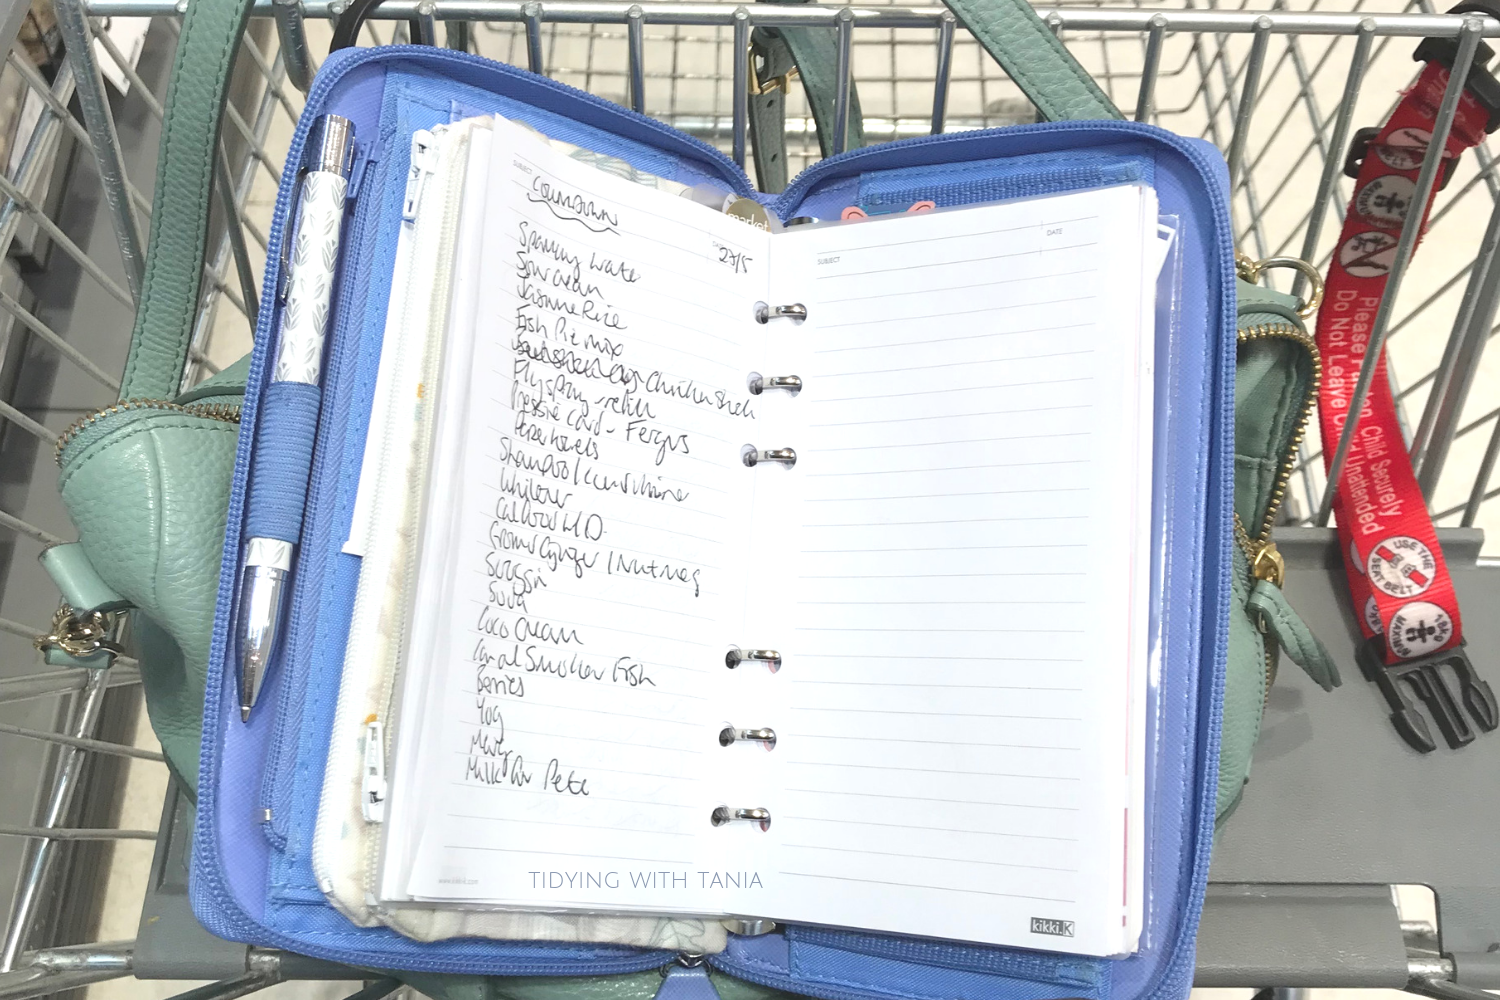 market
SUBJECT
COUNTDOWN
27/5
Sparkling Water
Sour cream
Jasmine Rice
Fish Pie mix
Chicken Stock
Flyspray - refill
Pressie Card - Fergus
Paper towels
Shampoo / Conditioner
Ground Ginger / Nutmeg
Soda
Coco Cream
Smoked Fish
Berries
Yog
Milk for Pete
www.kikki-k.com
TIDYING WITH TANIA
SUBJECT
DATE
kikki.K
Please Fasten Child Securely
Do Not Leave Child Unattended
USE THE
SEAT BELT
MAXIMUM
18kg